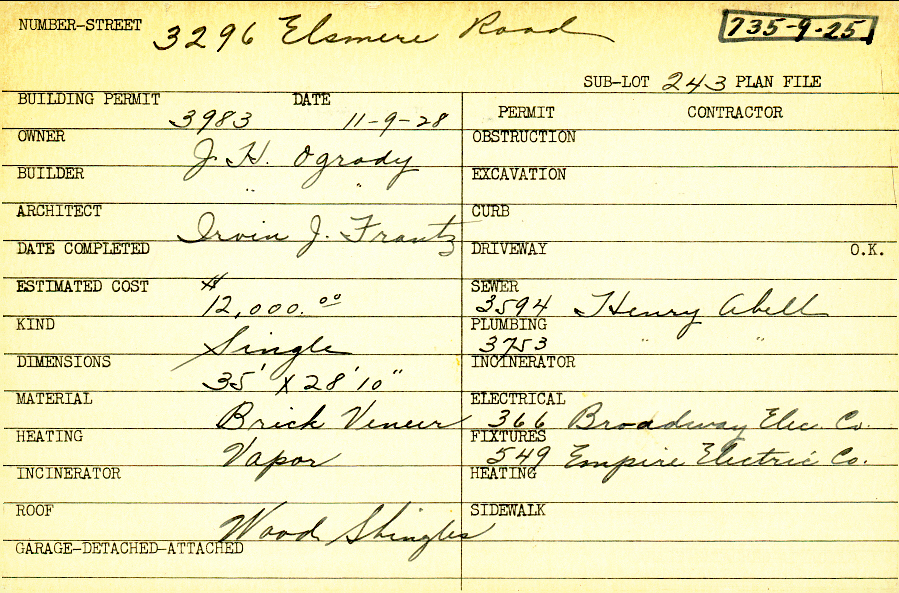 NUMBER-STREET 3296 Elsmere Road 735-9-25
SUB-LOT 243 PLAN FILE
BUILDING PERMIT 3983 DATE 11-9-28
OWNER J. H. Ogrady
BUILDER " "
ARCHITECT Irvin J. Frantz
DATE COMPLETED
ESTIMATED COST $12,000.00
KIND Single
DIMENSIONS 35' X 28' 10"
MATERIAL Brick Veneer
HEATING Vapor
INCINERATOR
ROOF Wood Shingles
GARAGE-DETACHED-ATTACHED
PERMIT CONTRACTOR
OBSTRUCTION
EXCAVATION
CURB
DRIVEWAY O.K.
SEWER
3594 Henry Abell
PLUMBING
3753 " "
INCINERATOR
ELECTRICAL
366 Broadway Elec. Co.
FIXTURES
549 Empire Electric Co.
HEATING
SIDEWALK